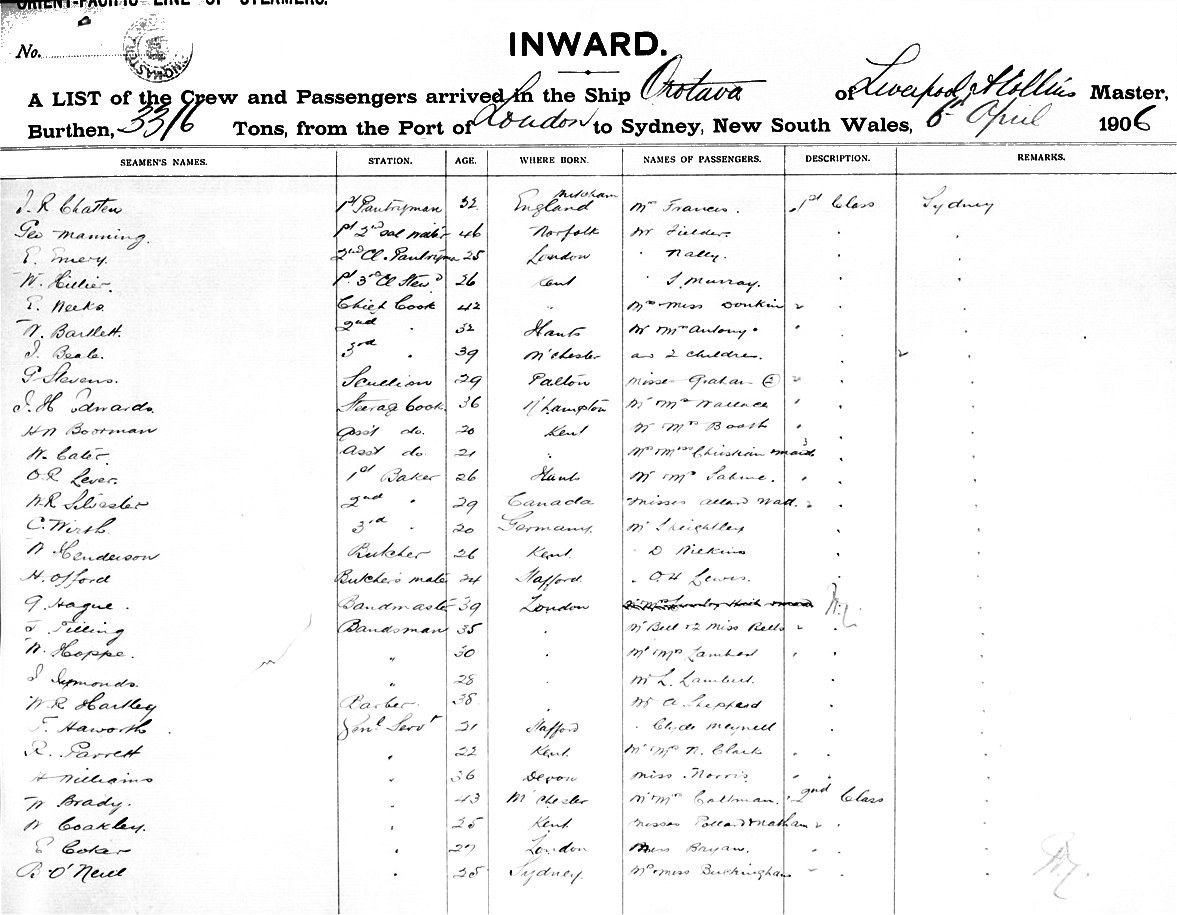 ORIENT-PACIFIC LINE OF STEAMERS.
No.
INWARD.
A LIST of the Crew and Passengers arrived in the Ship Orotava of Liverpool, Master,
Burthen, 3316 Tons, from the Port of London to Sydney, New South Wales, 6th April 1906
SEAMEN'S NAMES. STATION. AGE. WHERE BORN. NAMES OF PASSENGERS. DESCRIPTION. REMARKS.
Mitcham
J. R. Chatten 1st Pantryman 32 England Mr Francis. 1st Class Sydney
Geo Manning. 46 Norfolk Mr Fielder.
E. Emery. 2nd Cl. Pantryman 25 London " Nally.
W. Hillier. 26 Kent J. Murray.
E. Weeks Chief Cook 42 " Mrs Miss Donkin 2
W. Bartlett. 2nd " 32 Hants Mr Mrs Antony
J. Beale. 3rd " 39 M'chester and 2 children. 2
G Stevens. Scullion 29 Misses Graham (2)
J. H Edwards. Steerage Cook 36 N'hampton Mr Mrs Wallace
H W Boorman Ass't do. 20 Kent Mr Mrs Booth
W. Cater. Ass't do. 21 " Mrs Miss maid 3
O. R Lever. 1st Baker 26 Hants Mr Mrs
W. R Silvester 2nd " 29 Canada Misses
C. Wirth. 3rd " 20 Germany. Mr
W Henderson Butcher 26 Kent. D Wilkins
H. Offord Butcher's mate 24 Stafford O. H Lewis.
G Hague. Bandmaster 39 London
F Tilling Bandsman 35 " Mr Bell & 2 Miss Bells
W. Hoppe. " 30 " Mr Mrs Lambert
J Symonds. " 28 " Mr L. Lambert.
W. R Hartley Barber. 38 " Mr A Sheppard
F. Haworth Genl Servt 21 Stafford Clyde Meynell
R. Parrett " 22 Kent. Mr Mrs N. Clark
H Williams " 36 Devon Miss Norris
W Brady. " 43 M'chester Mr Mrs Coltman. 2nd Class
W Coakley. " 25 Kent Misses Pollard & Nathan
E Coker " 27 London Miss Bryan.
B O'Neill " 25 Sydney. Mrs Miss Buckingham